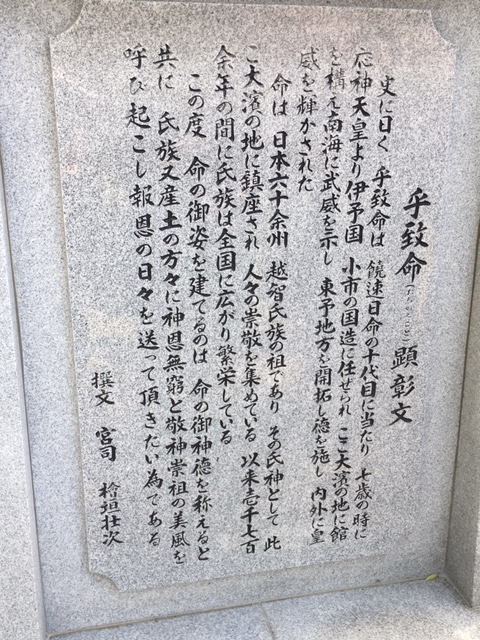 乎致命(おちのみこと)顕彰文
史に曰く 乎致命は 饒速日命の十代目に当たり 七歳の時に
応神天皇より伊予国 小市の国造に任ぜられ ここ大濱の地に館
を構え南海に武威を示し 東予地方を開拓し徳を施し 内外に皇
威を輝かされた
命は 日本六十余州 越智氏族の祖であり その氏神として 此
こ大濱の地に鎮座され 人々の崇敬を集めている 以来壱千七百
余年の間に氏族は全国に広がり繁栄している
この度 命の御姿を建てるのは 命の御神徳を称えると
共に 氏族又産土の方々に神恩無窮と敬神崇祖の美風を
呼び起こし報恩の日々を送って頂きたい為である
撰文 宮司 桧垣壮次